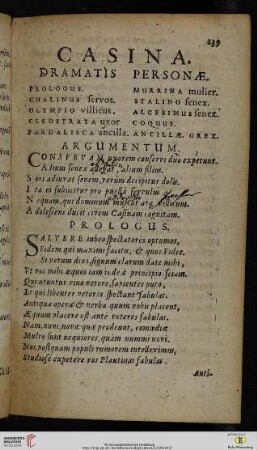 239
CASINA.
DRAMATIS PERSONÆ.
PROLOGUS. MURRINA mulier.
CHALINUS servos. STALINO senex.
OLYMPIO villicus. ALCESIMUS senex.
CLEOSTRATA uxor COQUUS.
PARDALISCA ancilla. ANCILLÆ. GREX.
ARGUMENTUM.
CONSERVAM uxorem conservi duo expetunt.
Alium senex alium filius.
Sors adjuvat senem, verum decipitur dolis.
Ita ei subjicitur pro puella servulus
Nequam, qui dominum
Adolescens ducit civem Casinam cognitam.
PROLOGUS.
SALVERE jubeo spectatores optumos,
Fidem qui maximi facitis, & quos Fides.
Si verum dixi, signum clarum date mihi,
Ut vos mihi æquos jam inde à principio sciam.
Qui utuntur vino vetere, sapientes puto,
Et qui libenter veteres spectant fabulas.
Antiqua opera & verba quum vobis placent,
Æquum placere est ante veteres fabulas.
Nam, nunc novæ quæ prodeunt, comœdiæ
Multo sunt nequiores, quàm nummi novi.
Nos postquam populi rumorem intelleximus,
Studiosè expetere vos Plautinas fabulas.
Anti-